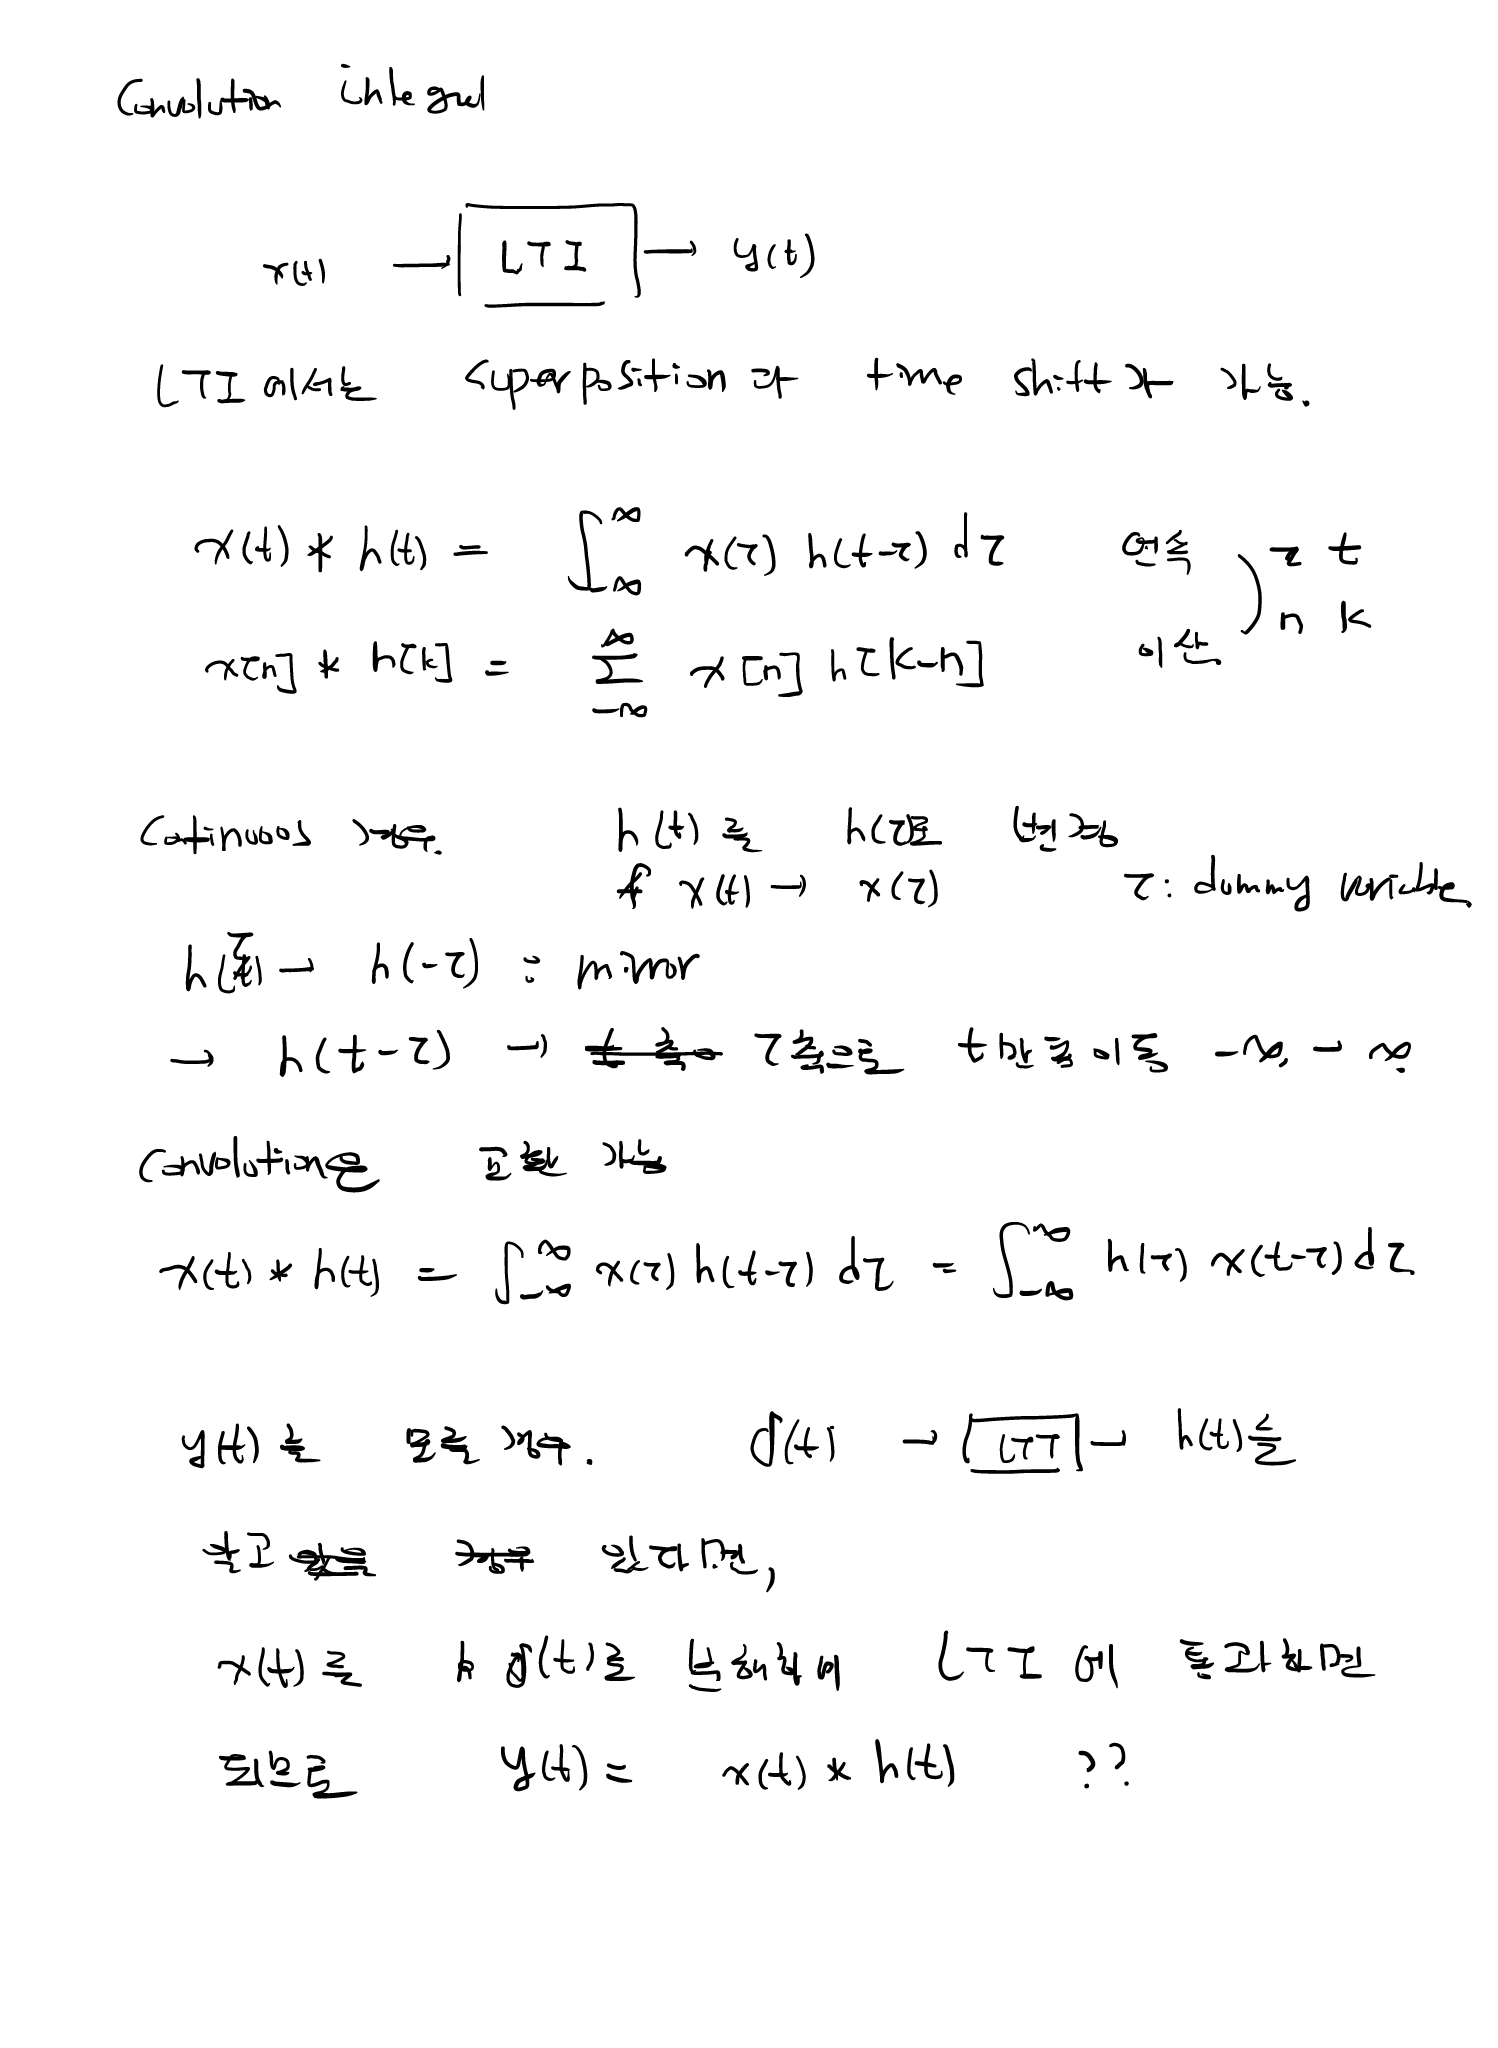 Convolution integral
x(t) → LTI → y(t)
LTI에서는 superposition과 time shift가 가능.
x(t) * h(t) = ∫_{-∞}^{∞} x(τ) h(t-τ) dτ 연속 τ t
x[n] * h[k] = Σ_{-∞}^{∞} x[n] h[k-n] 이산 n k
Continuous 경우. h(t)를 h(τ)로 변경
x(t) → x(τ) τ: dummy variable
h(τ) → h(-τ) : mirror
→ h(t-τ) → τ축으로 t만큼 이동 -∞ → ∞
Convolution은 교환 가능
x(t) * h(t) = ∫_{-∞}^{∞} x(τ) h(t-τ) dτ = ∫_{-∞}^{∞} h(τ) x(t-τ) dτ
y(t)를 모를 경우. δ(t) → LTI → h(t)를
알고 있다면,
x(t)를 δ(t)로 분해하여 LTI에 통과하면
되므로 y(t) = x(t) * h(t) ??